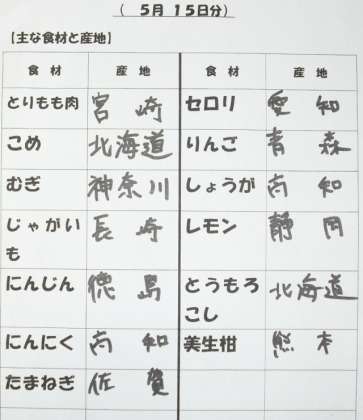 ( 5月 15日分)
【主な食材と産地】
食材 産地 食材 産地
とりもも肉 宮崎 セロリ 愛知
こめ 北海道 りんご 青森
むぎ 神奈川 しょうが 高知
じゃがい 長崎 レモン 静岡
も
にんじん 徳島 とうもろ 北海道
こし
にんにく 高知 美生柑 熊本
たまねぎ 佐賀